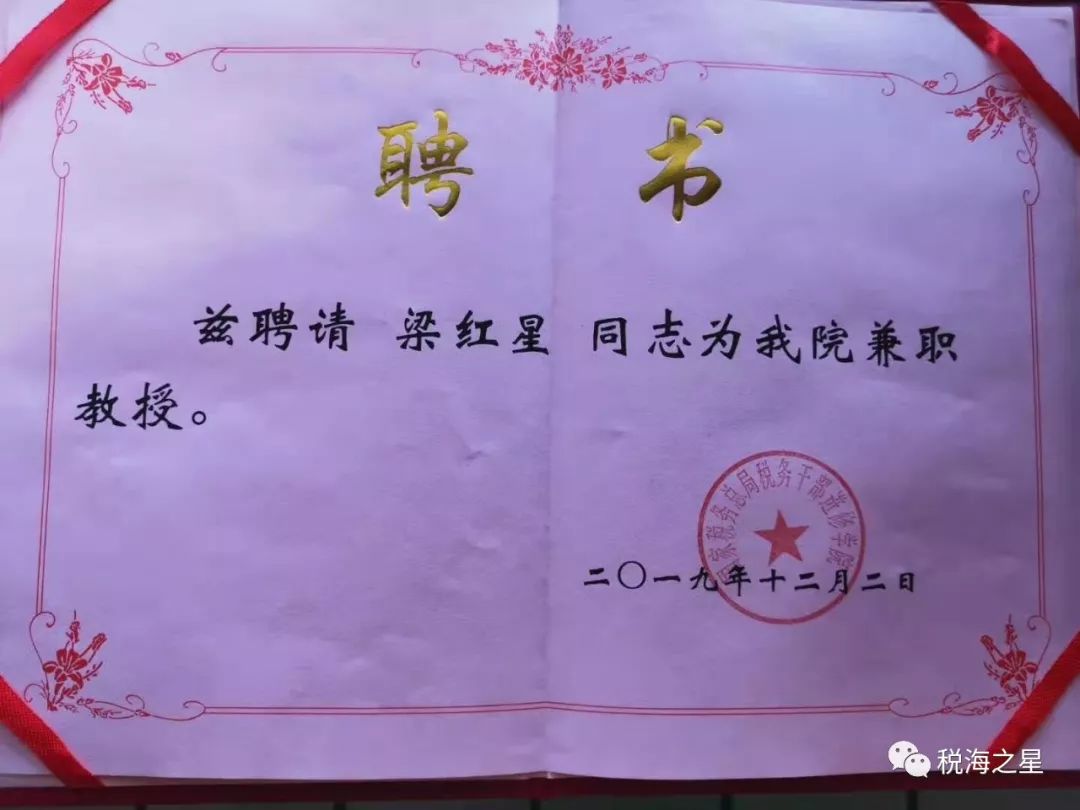 聘 书
兹聘请 梁红星 同志为我院兼职
教授。
国家税务总局税务干部进修学院
二〇一九年十二月二日
税海之星